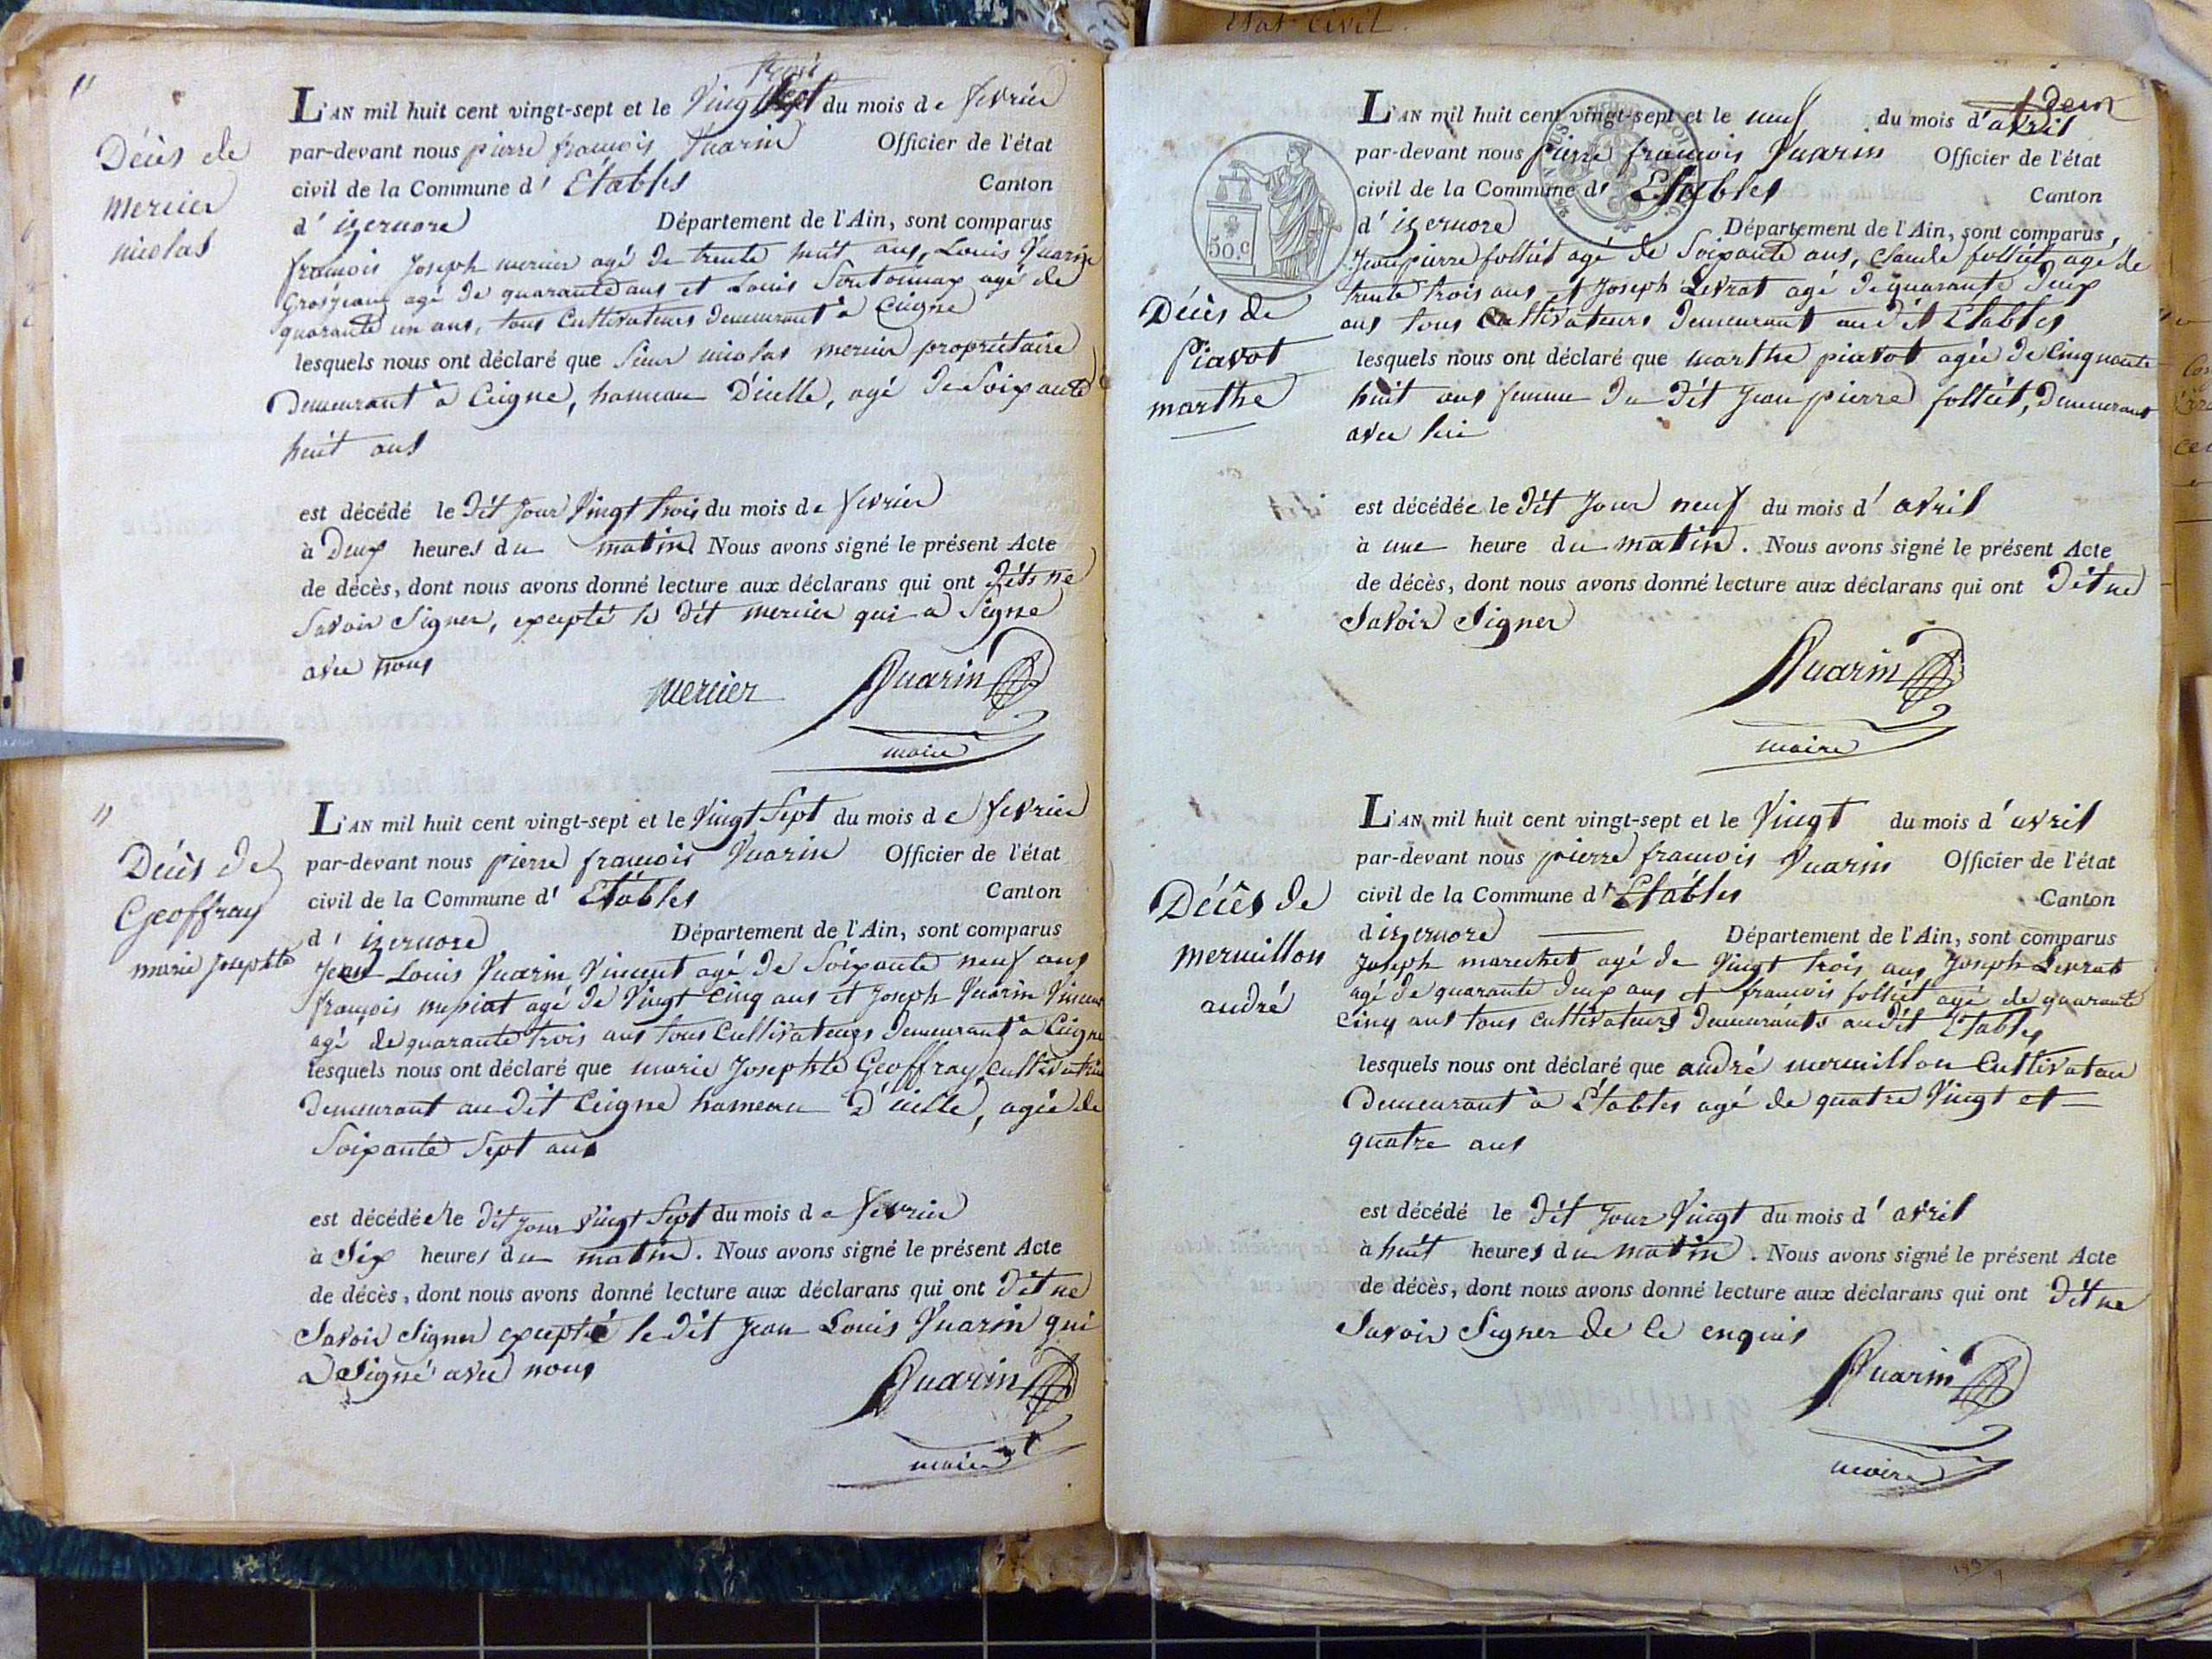 Etat Civil.
"
Décès de
mercier
nicolas
trois
L'AN mil huit cent vingt-sept et le Vingt Sept du mois de fevrier
par-devant nous pierre francois Vuarin Officier de l'état
civil de la Commune d' Etables Canton
d' izernore Département de l'Ain, sont comparus
francois Joseph mercier agé de trente huit ans, Louis Vuarin
Grosjean agé de quarante ans et Louis Sontonnax agé de
quarante un ans, tous Cultivateurs demeurant à Ceigne
lesquels nous ont déclaré que Sieur nicolas mercier propriétaire
Demeurant à Ceigne, hameau D'ielle, agé de Soixante
huit ans
est décédé le dit Jour Vingt trois du mois de fevrier
à Deux heures du matin. Nous avons signé le présent Acte
de décès, dont nous avons donné lecture aux déclarans qui ont Dits ne
Savoir Signer, excepté le dit mercier qui a Signe
avec nous
mercier Vuarin
maire
"
Décès de
Geoffray
marie Josephte
L'AN mil huit cent vingt-sept et le Vingt Sept du mois de fevrier
par-devant nous pierre francois Vuarin Officier de l'état
civil de la Commune d' Etables Canton
d' izernore Département de l'Ain, sont comparus
Jean Louis Vuarin Vincent agé de Soixante neuf ans
françois agé de Vingt cinq ans et Joseph Vuarin Vincent
agé de quarante trois ans tous Cultivateurs demeurant à Ceigne
lesquels nous ont déclaré que marie Josephte Geoffray cultivatrice
Demeurant au dit Ceigne hameau D'ielle, agée de
Soixante Sept ans
est décédée le dit jour Vingt Sept du mois de fevrier
à Six heures du matin. Nous avons signé le présent Acte
de décès, dont nous avons donné lecture aux déclarans qui ont Dit ne
Savoir Signer excepté le dit Jean Louis Vuarin qui
a Signé avec nous
Vuarin
maire
deux
50.c
Décès de
Piavot
marthe
L'AN mil huit cent vingt-sept et le neuf du mois d'avril
par-devant nous pierre francois Vuarin Officier de l'état
civil de la Commune d' Etables Canton
d' izernore Département de l'Ain, sont comparus
Jean pierre folliet agé de Soixante ans, Claude folliet agé de
trente trois ans et Joseph Levrat agé de quarante Deux
ans tous Cultivateurs Demeurant audit Etables
lesquels nous ont déclaré que marthe piavot agée de Cinquante
huit ans femme du dit Jean pierre folliet, Demeurant
avec lui
est décédée le Dit Jour neuf du mois d' avril
à une heure du matin. Nous avons signé le présent Acte
de décès, dont nous avons donné lecture aux déclarans qui ont Dit ne
Savoir Signer
Vuarin
maire
Décès de
mermillon
andré
L'AN mil huit cent vingt-sept et le Vingt du mois d' avril
par-devant nous pierre francois Vuarin Officier de l'état
civil de la Commune d' Etables Canton
d'izernore Département de l'Ain, sont comparus
Joseph marechet agé de Vingt trois ans Joseph Levrat
agé de quarante Deux ans et francois folliet agé de quarante
Cinq ans tous cultivateurs Demeurants audit Etables
lesquels nous ont déclaré que andré mermillon Cultivateur
Demeurant à Etables agé de quatre Vingt et
quatre ans
est décédé le Dit Jour Vingt du mois d' avril
à huit heures du matin. Nous avons signé le présent Acte
de décès, dont nous avons donné lecture aux déclarans qui ont Dit ne
Savoir Signer de ce enquis
Vuarin
maire